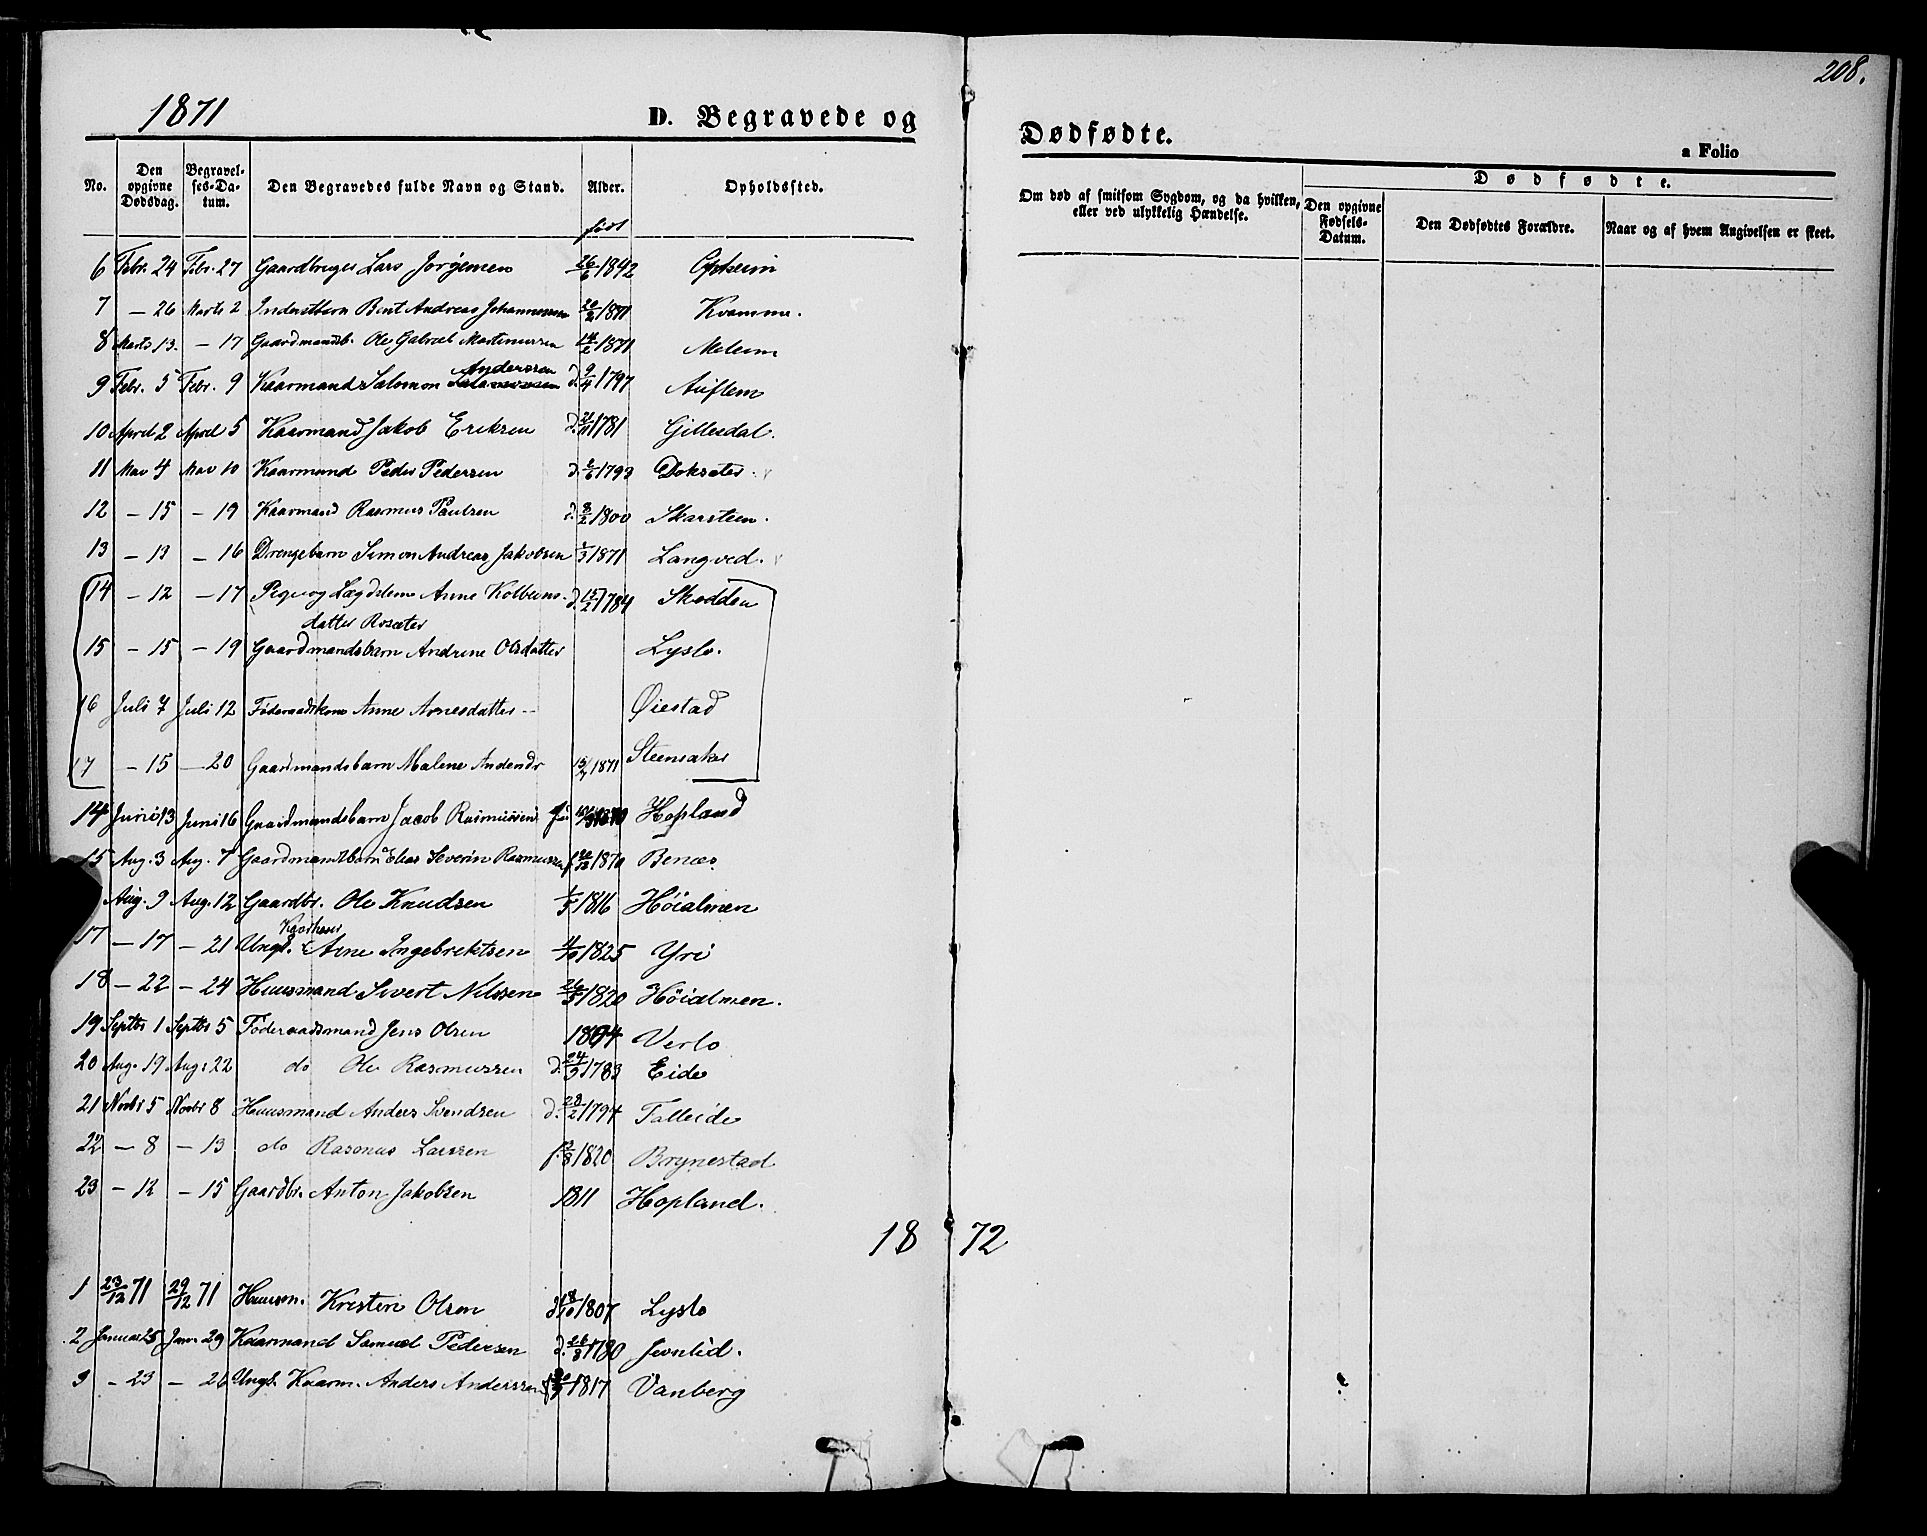 208.
1871
D. Begravede og Dødfødte.
a Folio
No.
Den opgivne Dødsdag.
Begravelses-Datum.
Den Begravedes fulde Navn og Stand.
Alder.
Opholdssted.
Om død af smitsom Sygdom, og da hvilken, eller ved ulykkelig Hændelse.
Dødfødte.
Den opgivne Fødsels-Datum.
Den Dødfødtes Forældre.
Naar og af hvem Angivelsen er skeet.
født
6 Febr. 24 Febr. 27 Gaardbruger Lars Jørgensen 26/6 1842 Opheim
7 — 26 Marts 2 Inderstbarn Bent Andreas Johannessen 20/2 1871 Kvamme.
8 Marts 13. — 17 Gaardmandsb. Ole Gabriel Martinussen 14/2 1871 Meleim
9 Febr. 5 Febr. 9 Kaarmand Salomon Anderssen d. 9/4 1797 Auflem
10 April 2 April 5 Kaarmand Jakob Eriksen d. 21/11 1781 Gillesdal.
11 Mai 4 Mai 10 Kaarmand Peder Pedersen d. 2/6 1793 Dokseter.
12 — 15 — 19 Kaarmand Rasmus Paulsen d. 8/2 1800 Skarsteen.
13 — 13 — 16 Drengebarn Simon Andreas Jakobsen 1/3 1871 Langved.
14 — 12 — 17 Pige og Lægdslem Anne Kolbeins- d. 15/2 1784 Skodden
datter Rosæter
15 — 15 — 19 Gaardmandsbarn Andrine Olsdatter Lyslo.
16 Juli 7 Juli 12 Føderaadskone Anne Arnesdatter — Øiestad
17 — 15 — 20 Gaardmandsbarn Malene Andersdr 15/7 1871 Steensaker
14 Juni 13 Juni 16 Gaardmandsbarn Jacob Rasmussen 1870 Hopland
15 Aug. 3 Aug. 7 Gaardmandsbarn Elias Severin Rasmussen f. 20/12 1870 Benæs.
Aug. 9 Aug. 12 Gaardbr. Ole Knudsen 1/5 1816 Høialmen
Kaarhaver
17 — 17 — 21 Ungk. Arne Ingebrektsen 4/10 1825 Yri
18 — 22 — 24 Huusmand Sivert Nilssen 26/5 1820 Høialmen.
19 Septbr 1 Septbr 5 Føderaadsmand Jens Olsen 1804 Verlo
20 Aug. 19 Aug. 22 do Ole Rasmussen d. 24/9 1783 Eide
21 Novbr 5 Novbr 8 Huusmand Anders Svendsen d. 23/2 1794 Talleide
22 — 8 — 13 do Rasmus Larssen f. 13/8 1820 Brynestad
23 — 12 — 15 Gaardbr. Anton Jakobsen 1811 Hopland.
1872
1 23/12 71 29/12 71 Huusm. Kristen Olsen d. 18/10 1807 Lyslo
2 Januar 25 Jan. 29 Kaarmand Samuel Pedersen d. 26/8 1780 Sevnlid.
3 — 23 — 26 Ungk. Kaarm. Anders Anderssen 1817 Vanberg